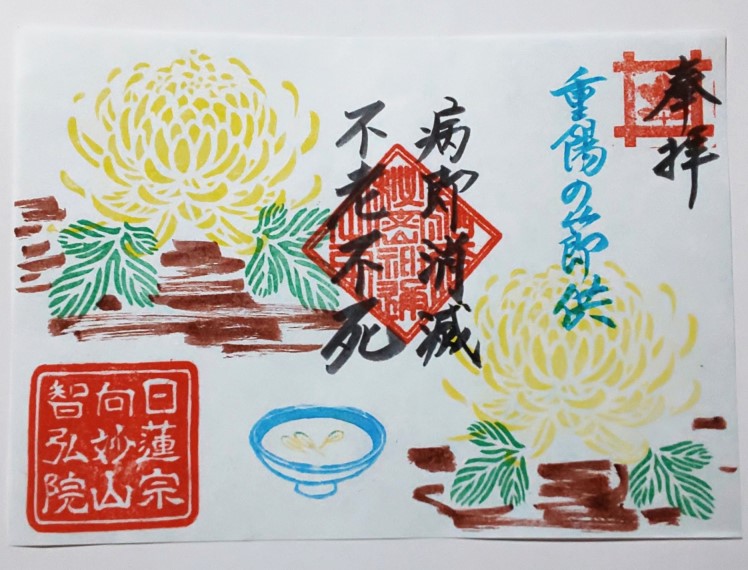 奉拝
重陽の節供
病即消滅
不老不死
日蓮宗
向妙山
智弘院